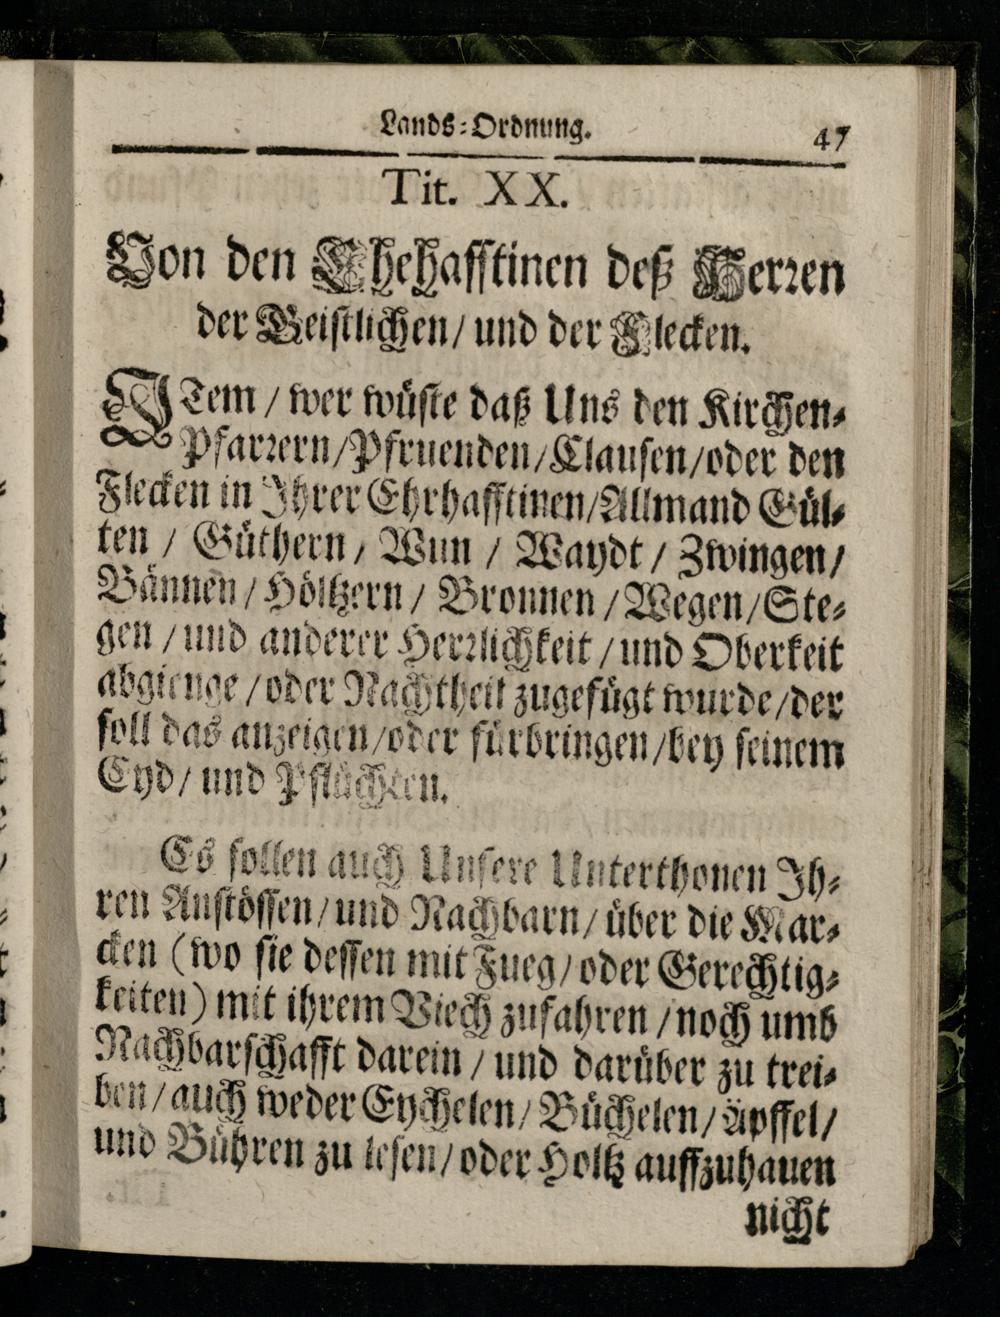 Lands-Ordnung. 47
Tit. XX.
Von den Ehehafftinen deß Herren
der Geistlichen/ und der Flecken.
ITem / wer wüste daß Uns den Kirchen-
Pfarrern/Pfruenden/Clausen/oder den
Flecken in Ihrer Ehrhafftinen/Allmand Gül-
ten / Güthern / Wun / Waydt / Zwingen/
Bännen / Höltzern / Bronnen / Wegen/Ste-
gen / und anderer Herrlichkeit / und Oberkeit
abgienge / oder Nachtheil zugefügt wurde/der
soll das anzeigen/oder fürbringen/bey seinem
Eyd/ und Pflüchten.
Es sollen auch Unsere Unterthonen Ih-
ren Anstössen/und Nachbarn/ über die Mar-
cken (wo sie dessen mit Fueg/ oder Gerechtig-
keiten) mit ihrem Viech zufahren / noch umb
Nachbarschafft darein / und darüber zu trei-
ben/ auch weder Eychelen/ Büchelen/ Äpffel/
und Bühren zu lesen/ oder Holtz auffzuhauen
nicht